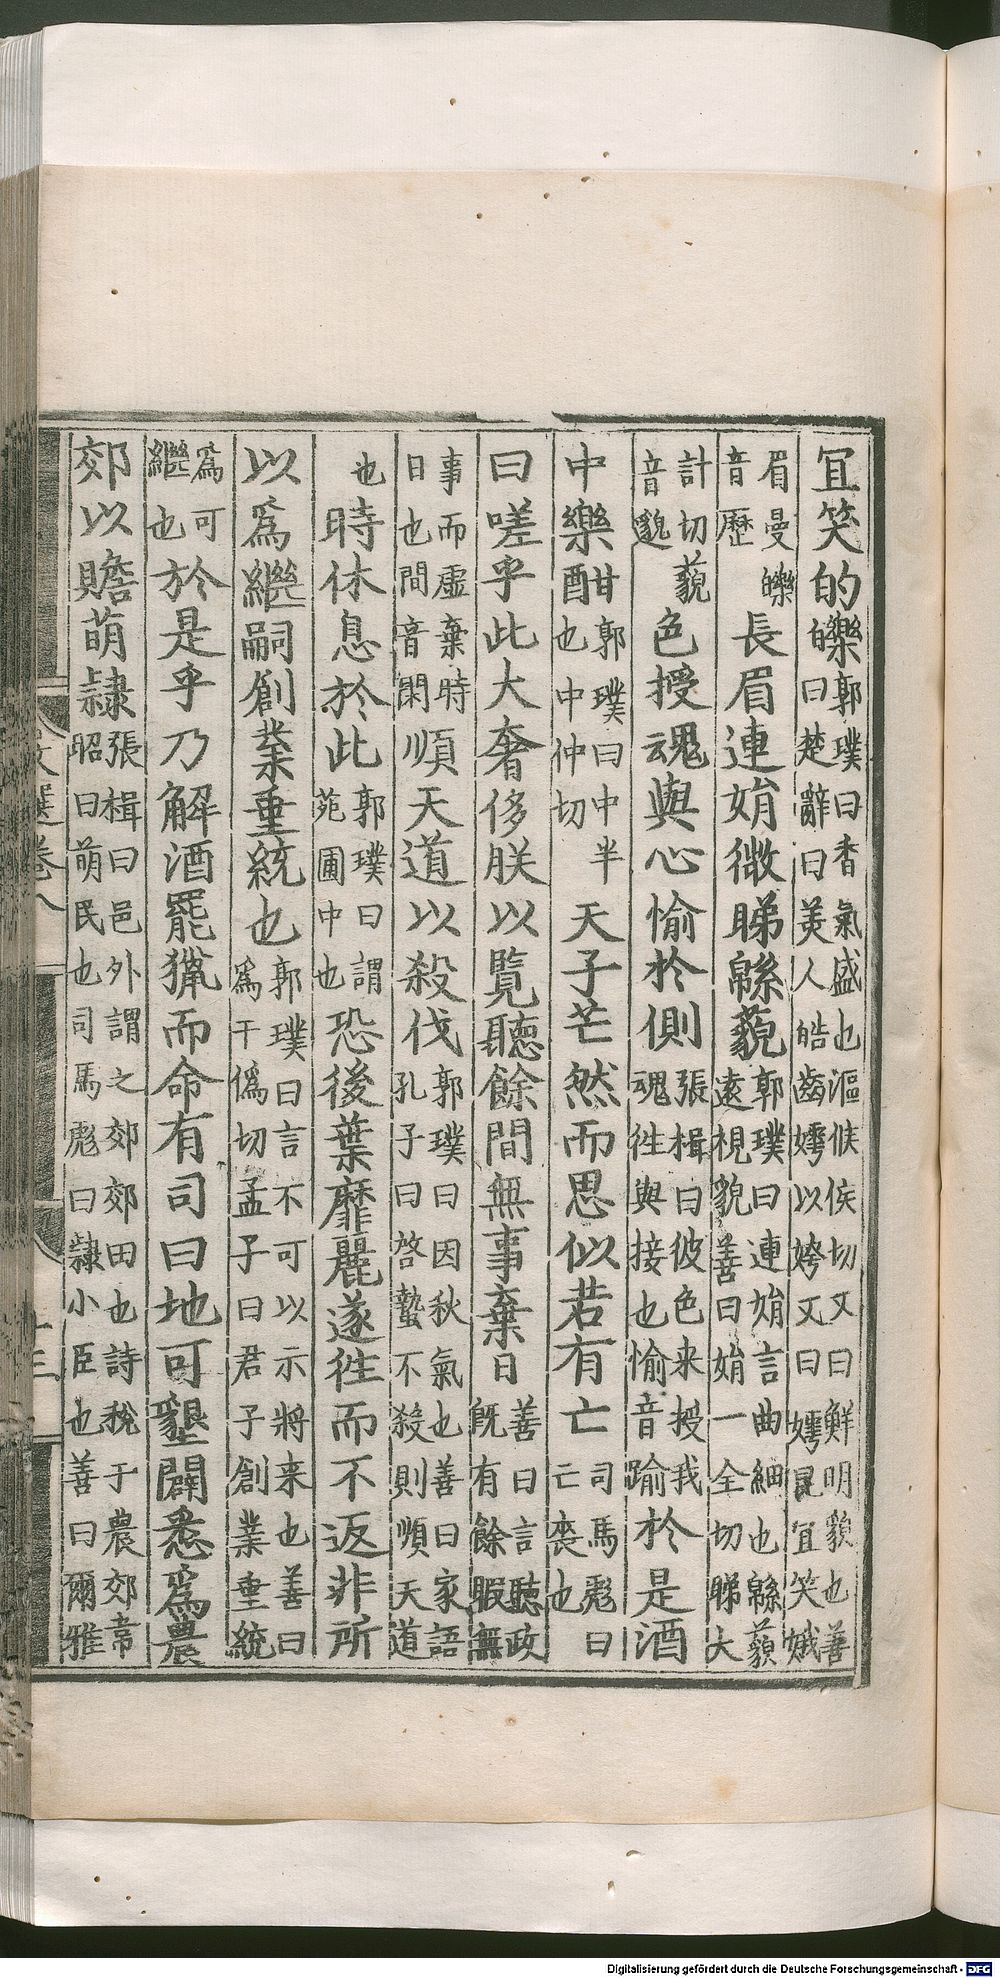 宜笑的皪郭璞曰香氣盛也漚候侯切又曰鮮明貌也善
曰楚辭曰美人皓齒嫮以姱又曰嫮宜笑娥
眉曼皪音歷長眉連娟微睇緜藐郭璞曰連娟言曲細也緜藐
遠視貌善曰娟一全切睇大
計切藐音邈色授魂與心愉於側張楫曰彼色来授我
魂徃與接也愉音踰於是酒
中樂酣郭璞曰中半也中仲切天子芒然而思似若有亡司馬彪曰
亡喪也
曰嗟乎此大奢侈朕以覽聽餘間無事棄日善曰言聽政
既有餘暇無
事而虛棄時日也間音閑順天道以殺伐郭璞曰因秋氣也善曰家語
孔子曰啓蟄不殺則順天道
也時休息於此郭璞曰謂苑囿中也恐後葉靡麗遂徃而不返非所
以爲繼嗣創業垂統也郭璞曰言不可以示將来也善曰
爲于僞切孟子曰君子創業垂統
爲可繼也於是乎乃解酒罷獵而命有司曰地可墾闢悉爲農
郊以贍萌隸張楫曰邑外謂之郊郊田也詩稅于農郊韋
昭曰萌民也司馬彪曰隸小臣也善曰爾雅
文選卷八
十三
Digitalisierung gefördert durch die Deutsche Forschungsgemeinschaft - DFG